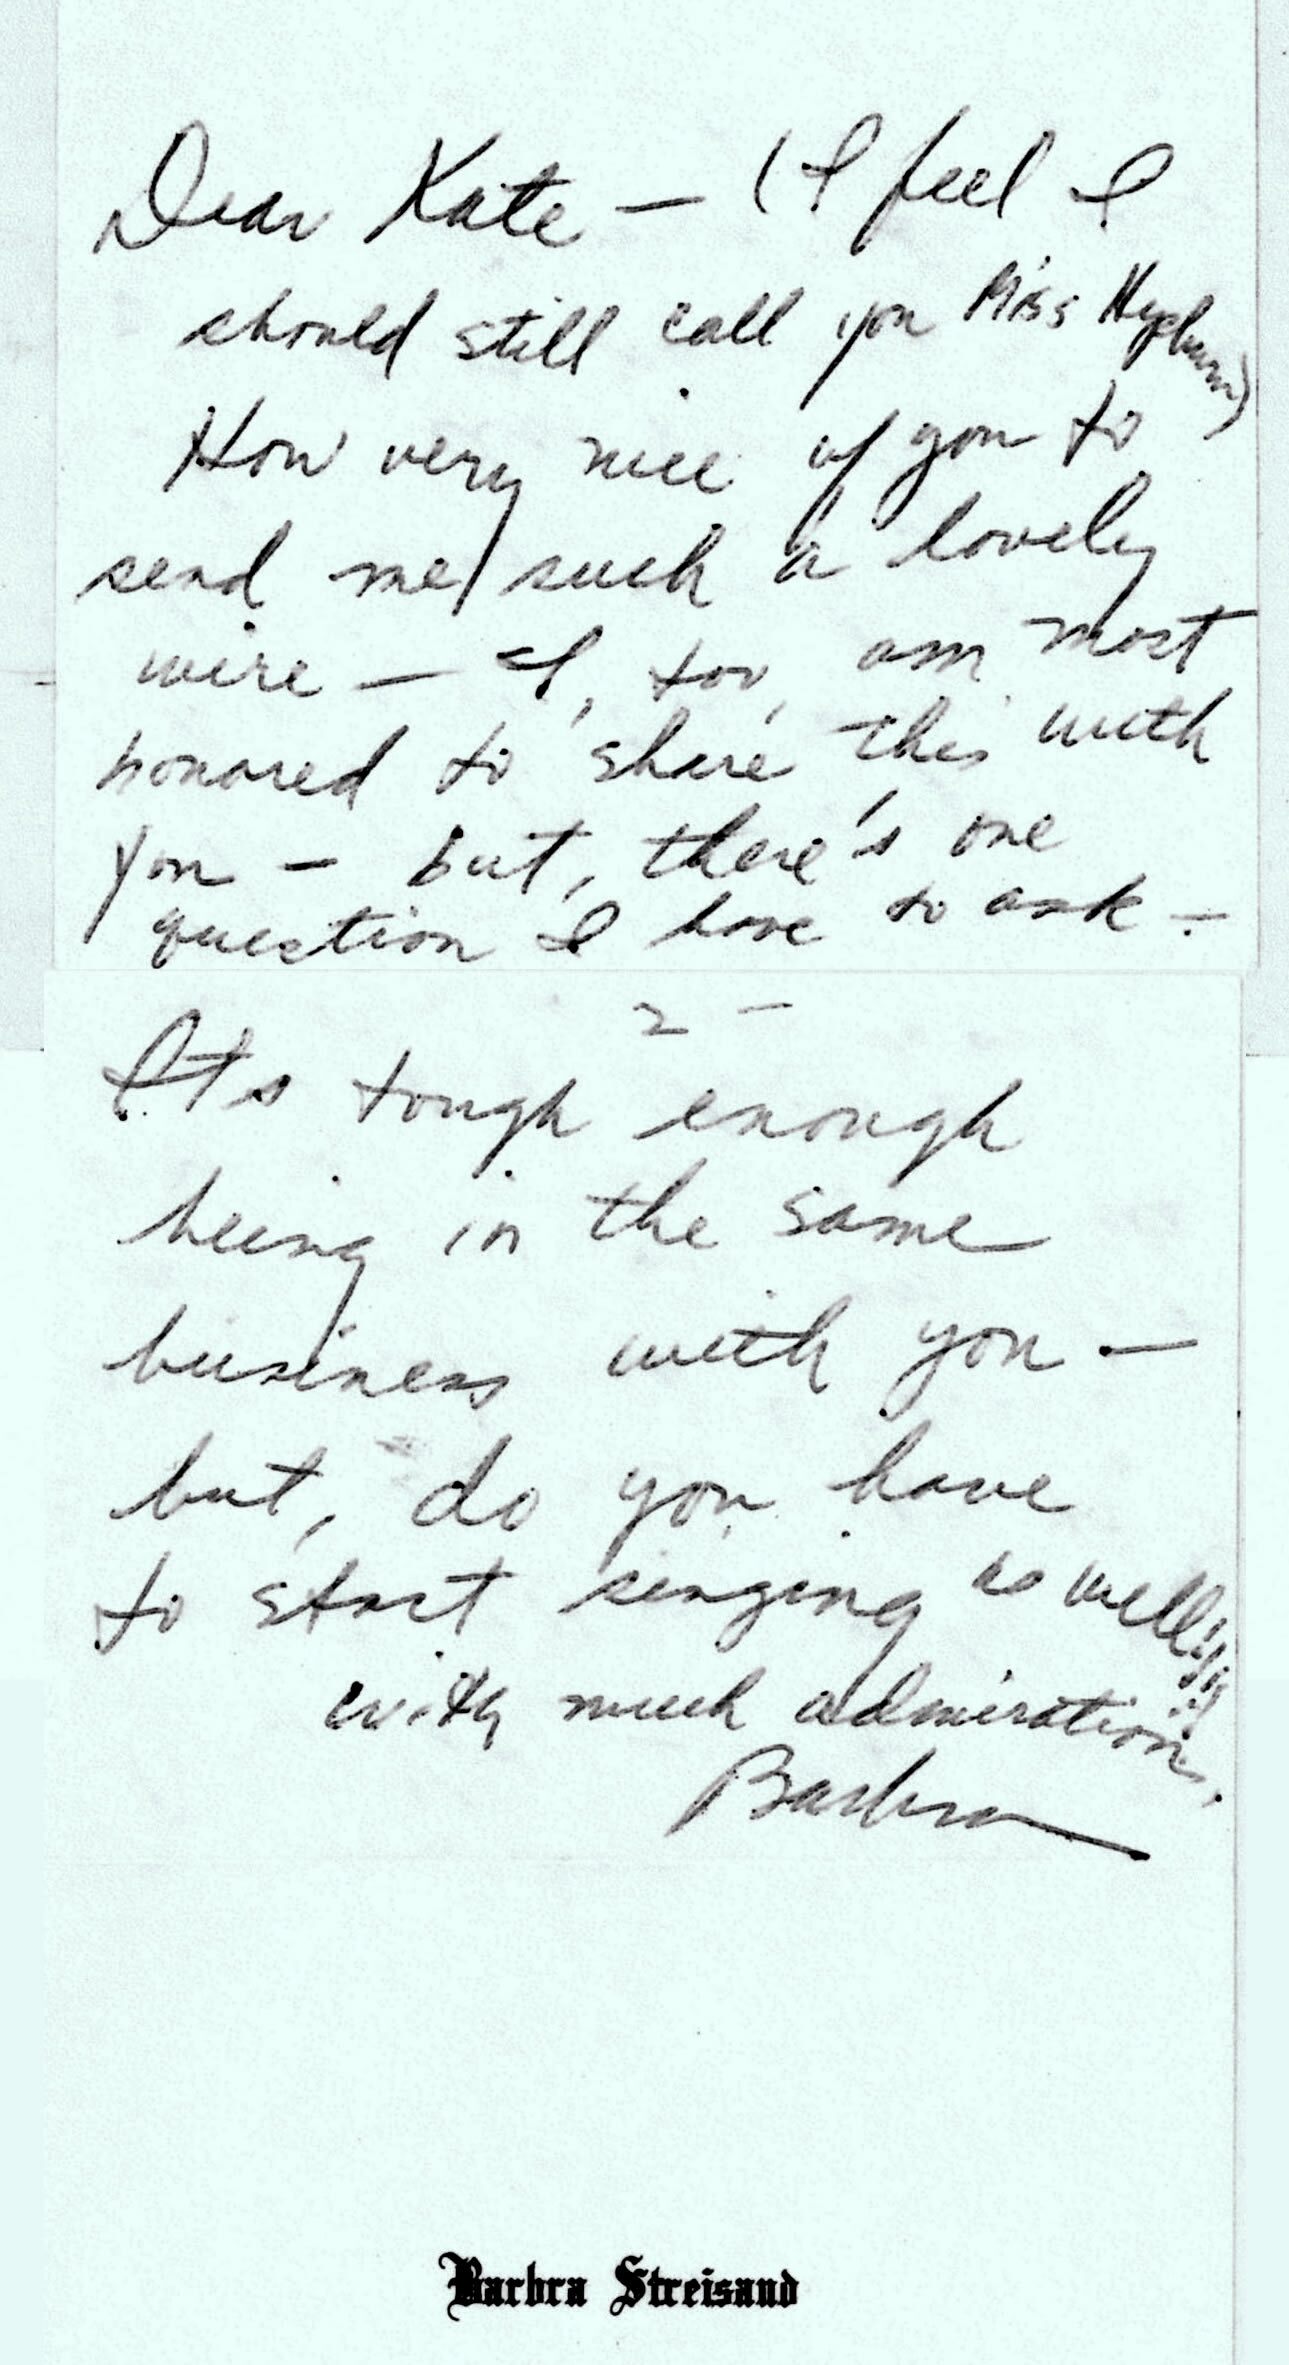 Dear Kate — (I feel I
should still call you Miss Hepburn)
How very nice of you to
send me such a lovely
wire — I, too, am most
honored to share this with
you — but, there's one
question I have to ask —
2 —
It's tough enough
being in the same
business with you —
but, do you have
to start singing as well?!!
with much admiration,
Barbra
Barbra Streisand